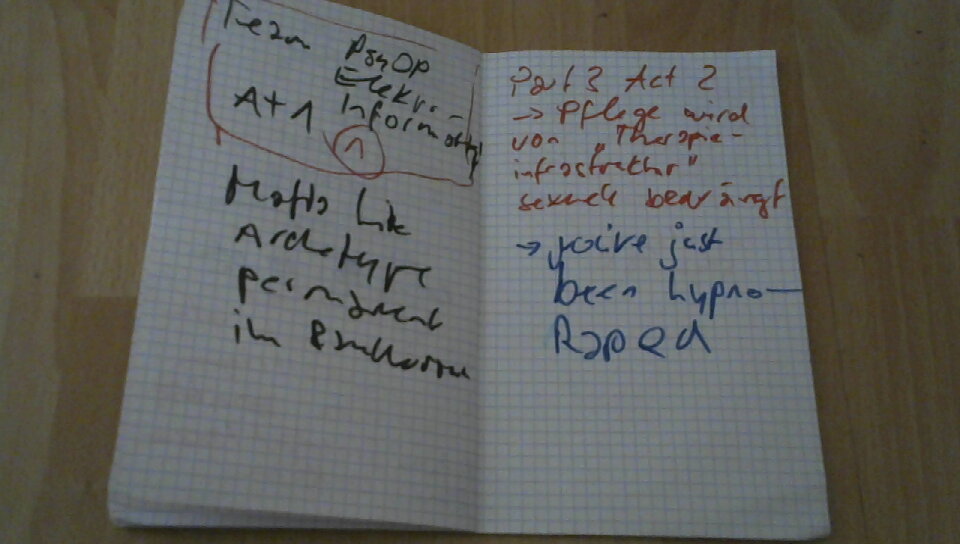 Team PsyOp
Elektr.-
A+1 Informatiker
1
Mafia like
Archetype
permanent
im
Part 3 Act 2
→ Pflege wird
von „Therapie-
infrastruktur"
sexuell bedrängt
→ you've just
been hypno-
Raped